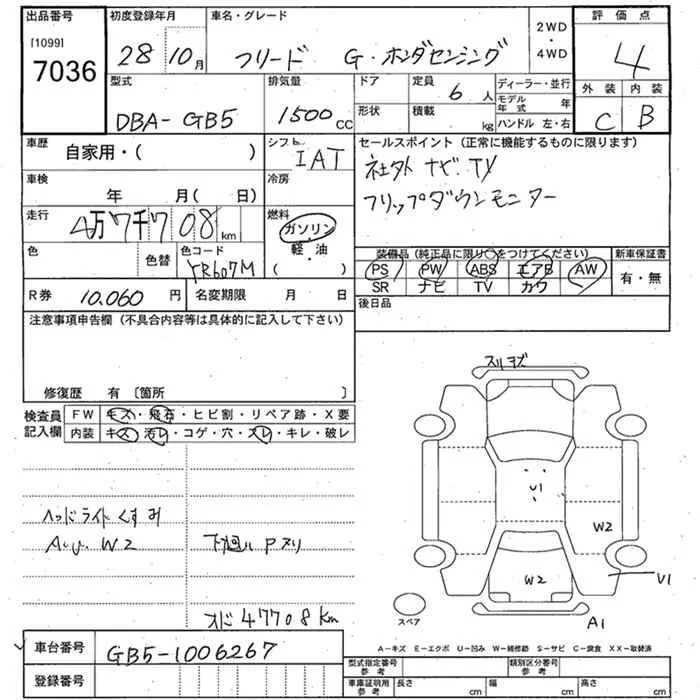 出品番号 初度登録年月 車名・グレード 2WD・4WD 評価点
[1099]
7036 28 10月 フリード G・ホンダセンシング 4
型式 排気量 ドア 定員 6人 ディーラー・並行 外装 内装
DBA-GB5 1500CC 形状 積載 kg モデル年式 年 C B
ハンドル 左・右
車歴 自家用・( ) シフト IAT セールスポイント (正常に機能するものに限ります)
車検 年 月( 日) 冷房 社外 ナビ.TV
走行 4万7千708km 燃料 ガソリン・軽油 ( ) フリップダウンモニター
色 色替 色コード YR607M 装備品(純正品に限り○をつけてください) 新車保証書
PS PW ABS エアB AW 有・無
SR ナビ TV カワ
R券 10,060円 名変期限 月 日 後日品
注意事項申告欄 (不具合内容等は具体的に記入して下さい)
修復歴 有〔箇所 〕
検査員記入欄 FW キズ・飛石・ヒビ割・リペア跡・X要
内装 キズ・汚レ・コゲ・穴・スレ・キレ・破レ
ヘッドライトくすみ
W2
下廻り Pスリ
オド 47708km
スリキズ
U1
W2
W2
U1
A1
スペア
A-キズ E-エクボ U-凹み W-補修跡 S-サビ C-腐食 XX-取替済
車台番号 GB5-1006267
登録番号
型式指定番号参考 類別区分番号参考
車庫証明用参考 長さ cm 幅 cm 高さ cm